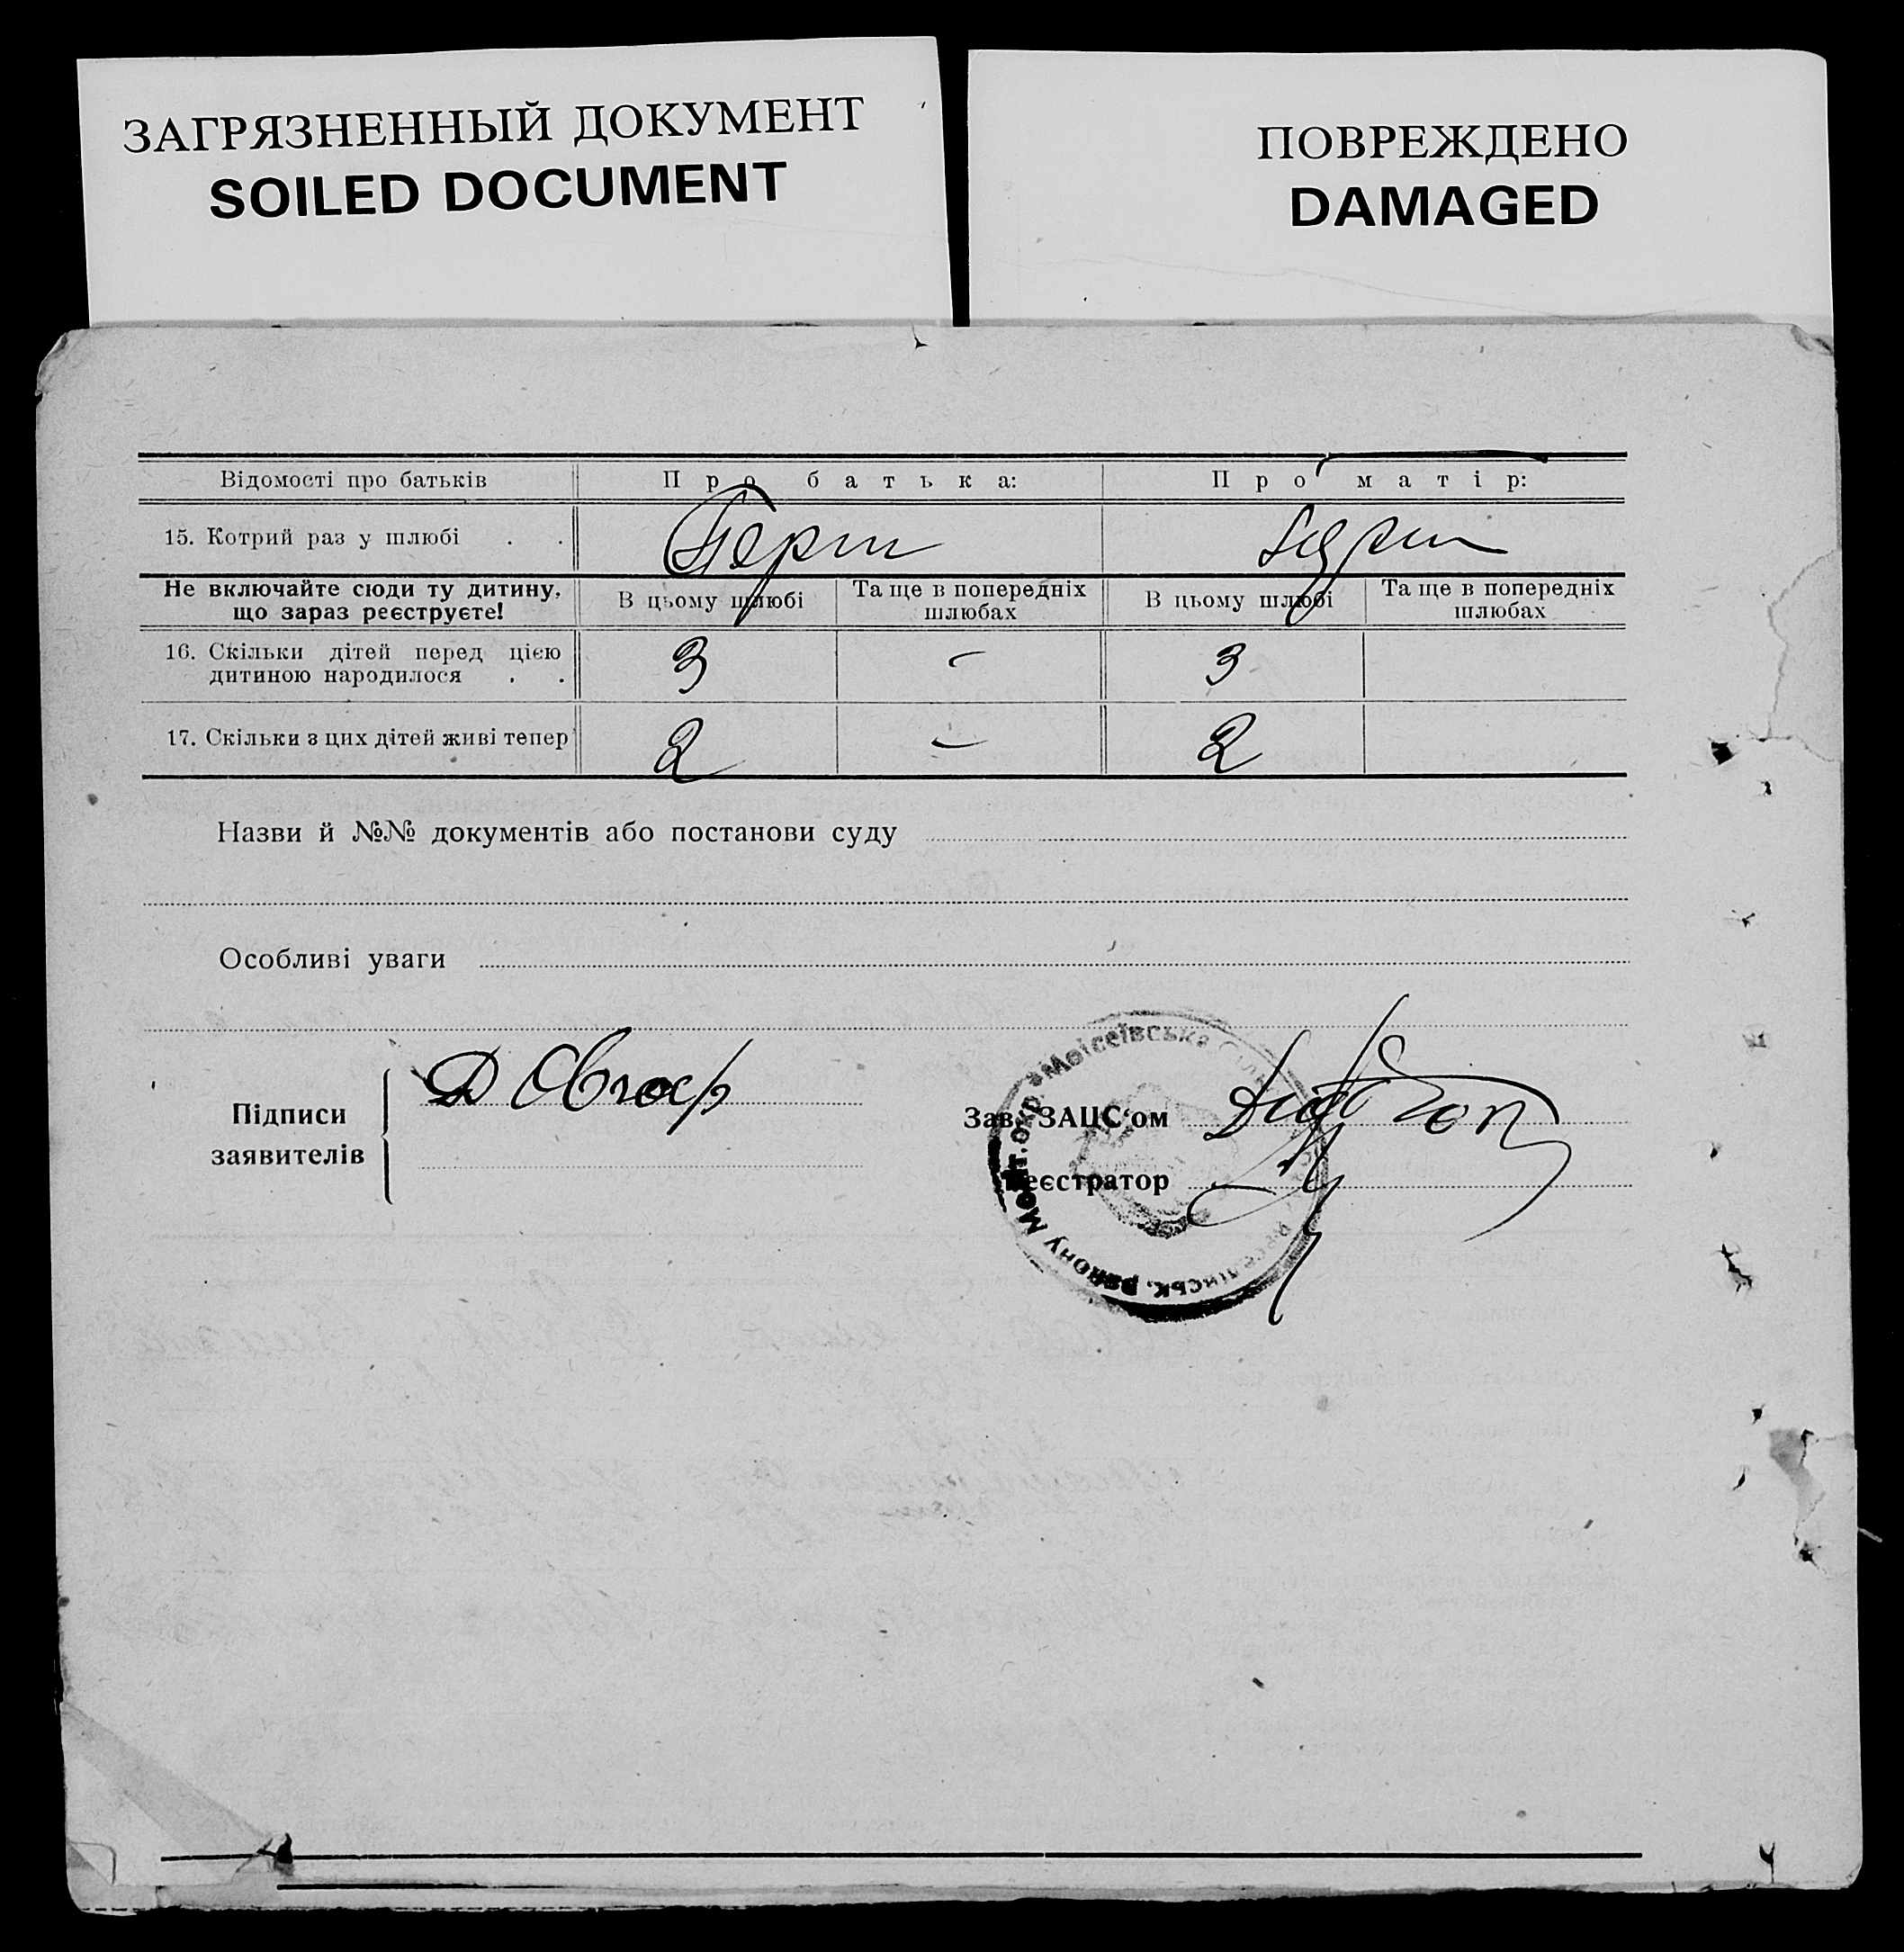 ЗАГРЯЗНЕННЫЙ ДОКУМЕНТ
SOILED DOCUMENT
ПОВРЕЖДЕНО
DAMAGED
Відомості про батьків Про батька: Про матір:
15. Котрий раз у шлюбі . . Перш
Не включайте сюди ту дитину, що зараз реєструєте! В цьому шлюбі Та ще в попередніх шлюбах В цьому шлюбі Та ще в попередніх шлюбах
16. Скільки дітей перед цією дитиною народилося . . 3 - 3
17. Скільки з цих дітей живі тепер 2 - 2
Назви й №№ документів або постанови суду
Особливі уваги
Підписи заявителів
Зав. ЗАЦС'ом
Реєстратор
Моісеївська
району